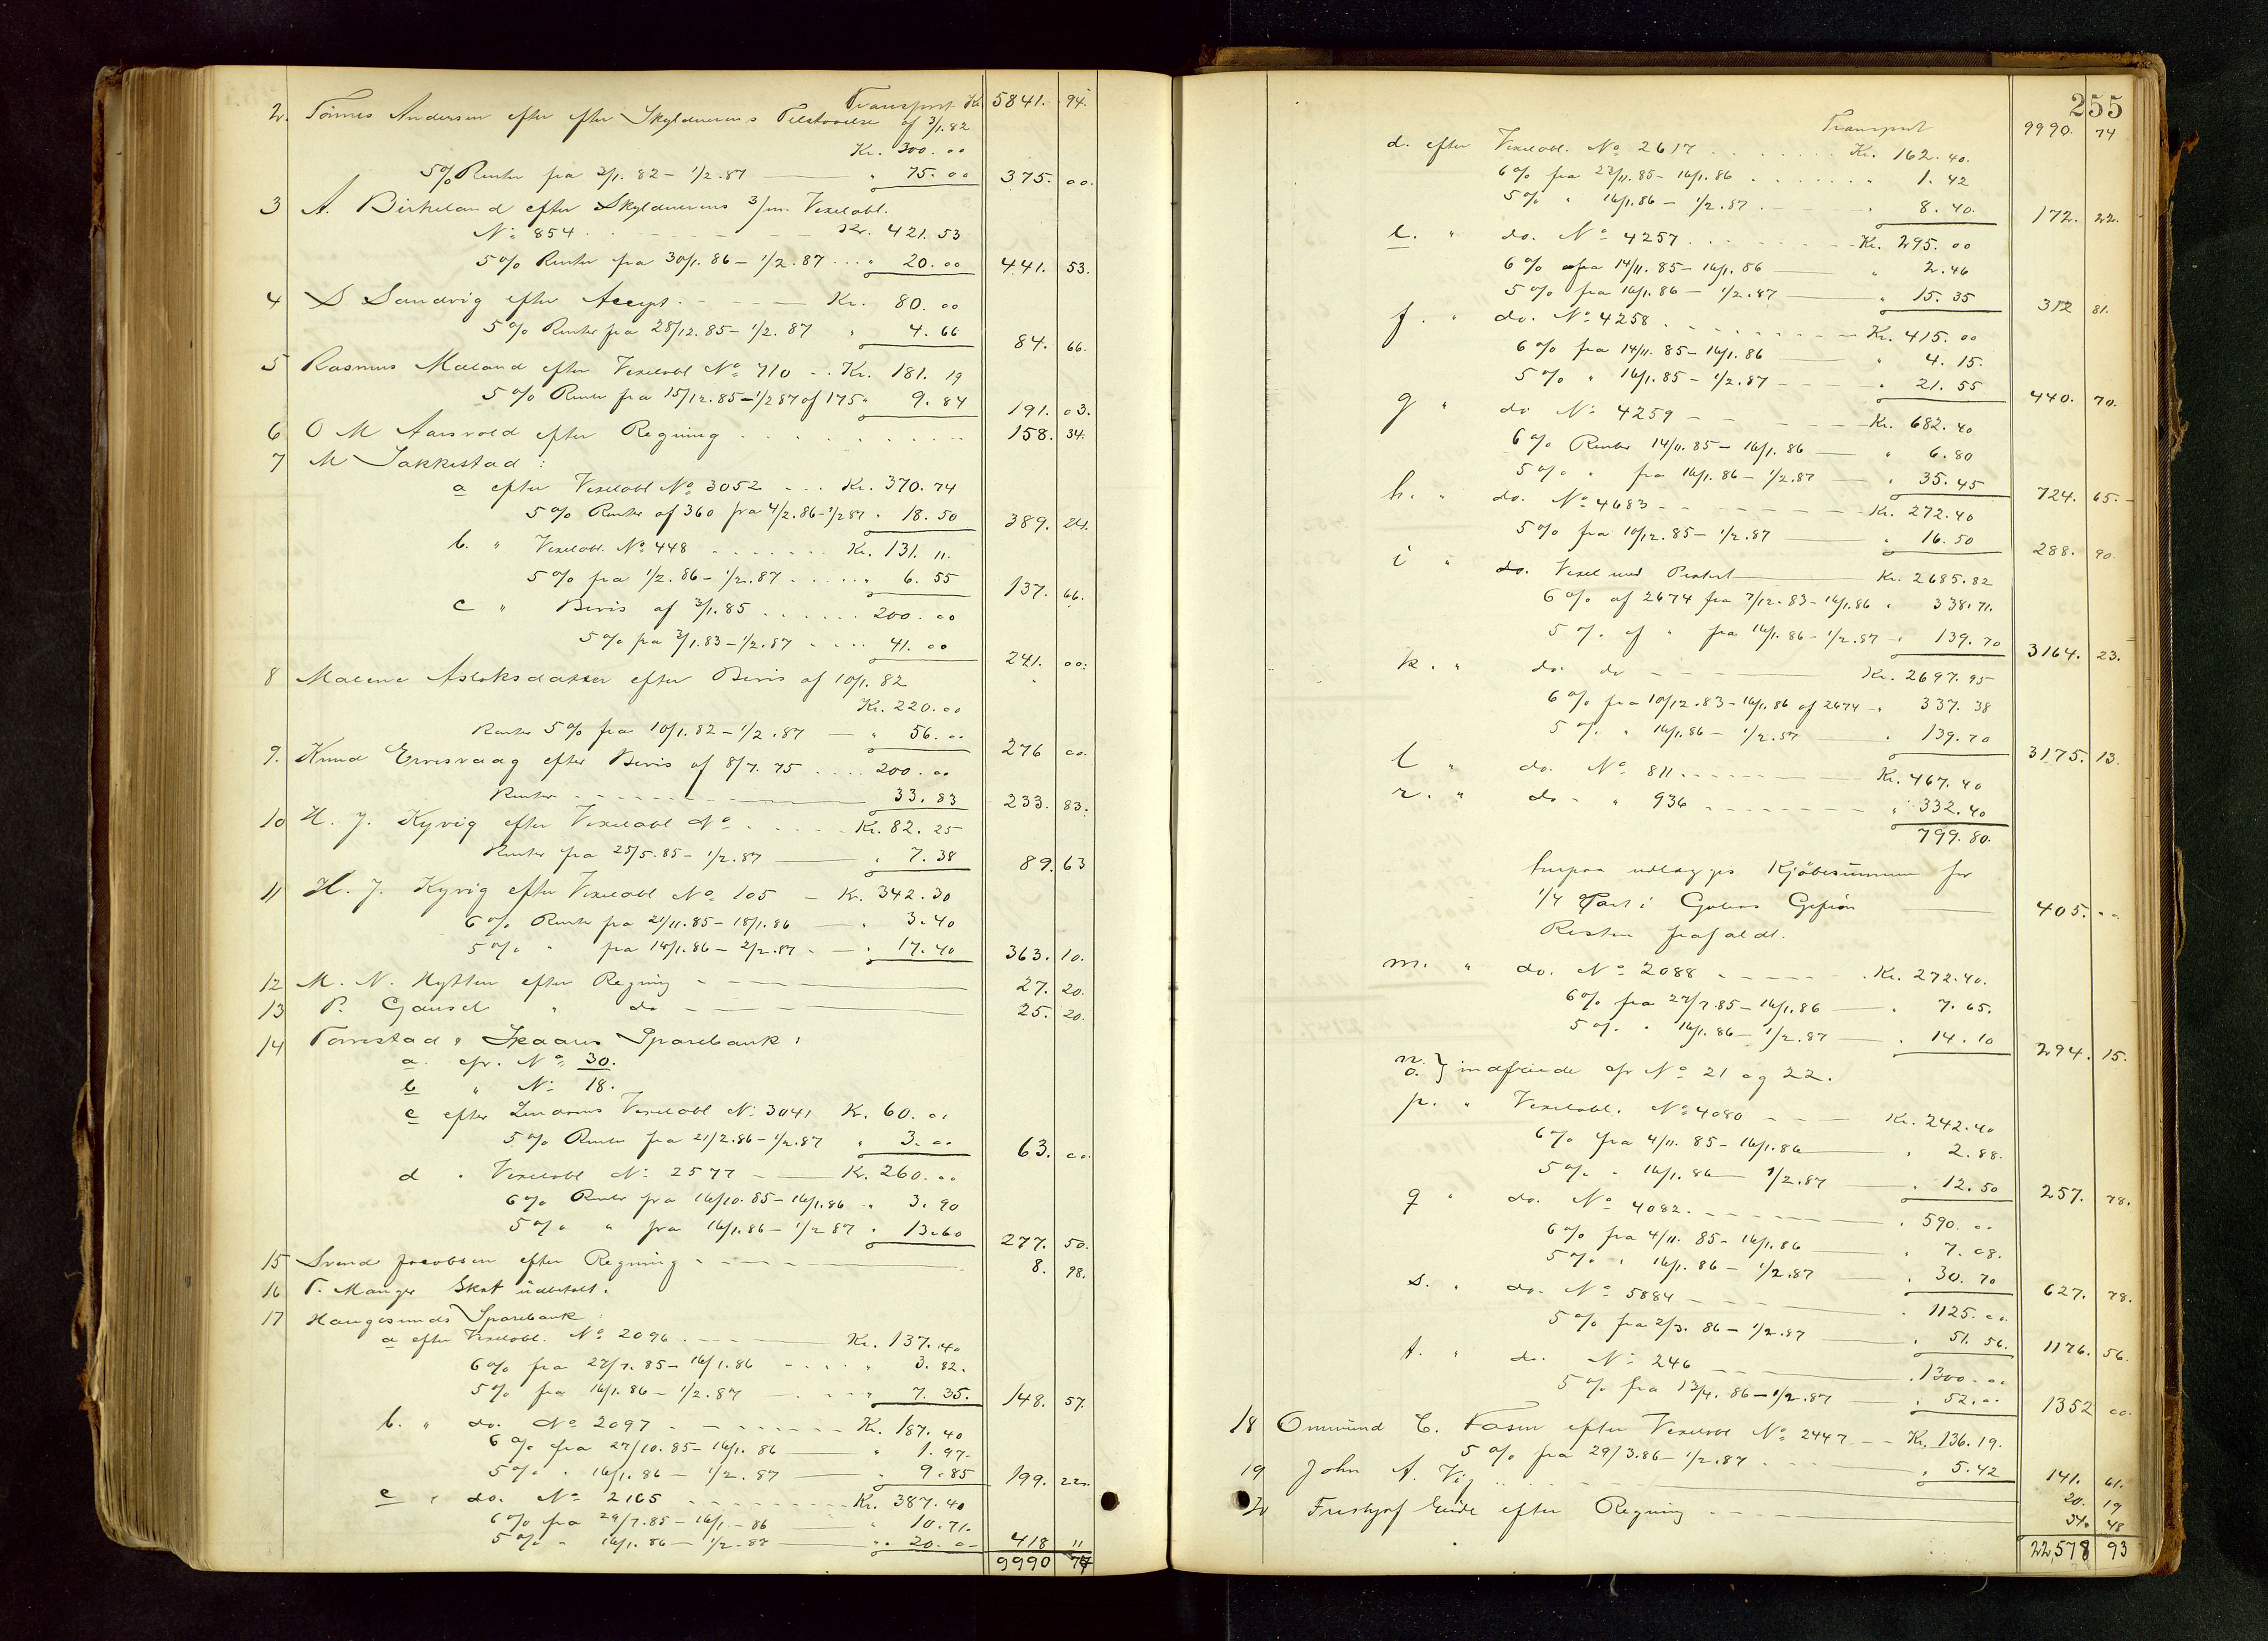 Transport Kr. 5841. 94.
2. Tönnes Andersen efter Skyldnerens Tilstaaelse af 3/1.82
Kr. 300.00
5% Renter fra 3/1.82 - 1/2.87 " 75.00 375.00.
3 A. Birkeland efter Skyldnerens 3/m. Vexelobl.
No 854 Kr. 421.53
5% Renter fra 30/1.86 - 1/2.87 " 20.00 441. 53.
4 S Sandvig efter Accept. Kr. 80.00
5% Renter fra 28/12.85 - 1/2.87 " 4.66 84. 66.
5 Rasmus Maland efter Vexelobl No 710 Kr. 181. 19
5% Renter fra 15/12.85 - 1/2 87 af 175 " 9.84 191. 03.
6 O M Aarsvold efter Regning 158. 34.
7 M Jakkestad:
a efter Vexelobl No 3052 Kr. 370.74
5% Renter af 360 fra 4/2.86 - 1/2 87 " 18.50 389. 24.
b. " Vexelobl. No 448 Kr. 131. 11.
5% fra 1/2.86 - 1/2.87 " 6.55 137. 66.
c " Bevis af 3/1.85 200.00
5% fra 3/1.83 - 1/2.87 41.00 241. 00.
8 Malene Aslaksdatter efter Bevis af 10/1.82
Kr. 220.00
Renter 5% fra 10/1.82 - 1/2.87 " 56.00 276 00.
9. Knud efter Bevis af 8/7.75 200.00
Renter 33.83 233. 83.
10 H. J. Kyvig efter Vexelobl No Kr. 82.25
Renter fra 25/5.85 - 1/2.87 " 7.38 89. 63
11 H. J. Kyvig efter Vexelobl No 105 Kr. 342.30
6% Renter fra 21/11.85 - 18/1.86 " 3.40
5% " fra 18/1.86 - 2/2.87 " 17.40 363. 10.
12 M. N. efter Regning 27. 20.
13 P. Gausel " do 25. 20.
14 Torvestad & Skaare Sparebank:
a. cfr. No 30.
b " No 18.
c efter Vexelobl No 3041 Kr. 60.00
5% Renter fra 21/2.86 - 1/2.87 " 3.00 63. 00.
d " Vexelobl No 2577 Kr. 260.00
6% Renter fra 16/10.85 - 16/1.86 " 3.90
5% " fra 16/1.86 - 1/2 87 " 13.60 277. 50.
15 Svend Jacobsen efter Regning 8. 98.
16 T. Manger Skat udbetalt.
17 Haugesunds Sparebank:
a efter Vexelobl. No 2096. Kr. 137.40
6% fra 27/7.85 - 16/1.86 " 3.82.
5% fra 16/1.86 - 1/2.87 " 7.35. 148. 57.
b. " do. No 2097 Kr. 187.40
6% fra 27/10.85 - 16/1.86 " 1.97.
5% " 16/1.86 - 1/2.87 " 9.85 199. 22.
c " do. No 2165 Kr. 387.40
6% fra 29/7.85 - 16/1.86 " 10.71.
5% " 16/1.86 - 1/2.87 " 20.00 418 11
9990 74
255
Transport 9990. 74
d. efter Vexelobl. No 2617 Kr. 162.40.
6% fra 23/11.85 - 16/1.86 " 1.42
5% " 16/1.86 - 1/2.87 " 8.40. 172. 22.
e. " do. No 4257 Kr. 295.00
6% fra 14/11.85 - 16/1.86 " 2.46
5% fra 16/1.86 - 1/2.87 " 15.35 312 81.
f. " do. No 4258 Kr. 415.00
6% fra 14/11.85 - 16/1.86 " 4.15.
5% " 16/1.85 - 1/2.87 " 21.55 440. 70.
g " do No 4259 Kr. 682.40
6% Renter 14/11.85 - 16/1.86 " 6.80
5% " fra 16/1.86 - 1/2.87 " 35.45 724. 65.
h. " do. No 4683 Kr. 272.40
5% fra 10/12.85 - 1/2.87 " 16.50 288. 90.
i " do. Vexel med Protest Kr. 2685.82
6% af 2674 fra 7/12.83 - 16/1.86 " 338.71.
5% af " fra 16/1.86 - 1/2.87 " 139.70 3164. 23.
k. " do. do Kr. 2697.95
6% fra 10/12.83 - 16/1.86 af 2674 " 337.38
5% " 16/1.86 - 1/2.87 " 139.70 3175. 13.
l " do. No 811. Kr. 467.40
r. " do " 936 " 332.40
799.80.
herpaa udlægges Kjöbesummen for
1/4 Part i Galeas Gefion 405. "
Resten frafaldt.
m. " do. No 2088 Kr. 272.40.
6% fra 27/7.85 - 16/1.86 " 7.65.
5% " 16/1.86 - 1/2.87 " 14.10 294. 15.
n. o. } indfriede cfr No 21 og 22.
p. " Vexelobl. No 4080 Kr. 242.40
6% fra 4/11.85 - 16/1.86 " 2.88.
5% " 16/1.86 - 1/2.87 " 12.50 257. 78.
q " do. No 4082. " 590.00
6% fra 4/11.85 - 16/1.86 " 7.08.
5% " 16/1.86 - 1/2.87 " 30.70 627. 78.
s. " do. No 5884 " 1125.00.
5% fra 2/3.86 - 1/2.87 " 51.56. 1176. 56.
t. " do. No 246 " 1300.00
5% fra 13/4.86 - 1/2.87 " 52.00 1352 00.
18 Ommund C. efter Vexelobl No 2447 Kr. 136.19.
5% fra 29/3.86 - 1/2.87 " 5.42 141. 61.
19 John A. Vig 20. 19
20 efter Regning 54. 48
22,578 93